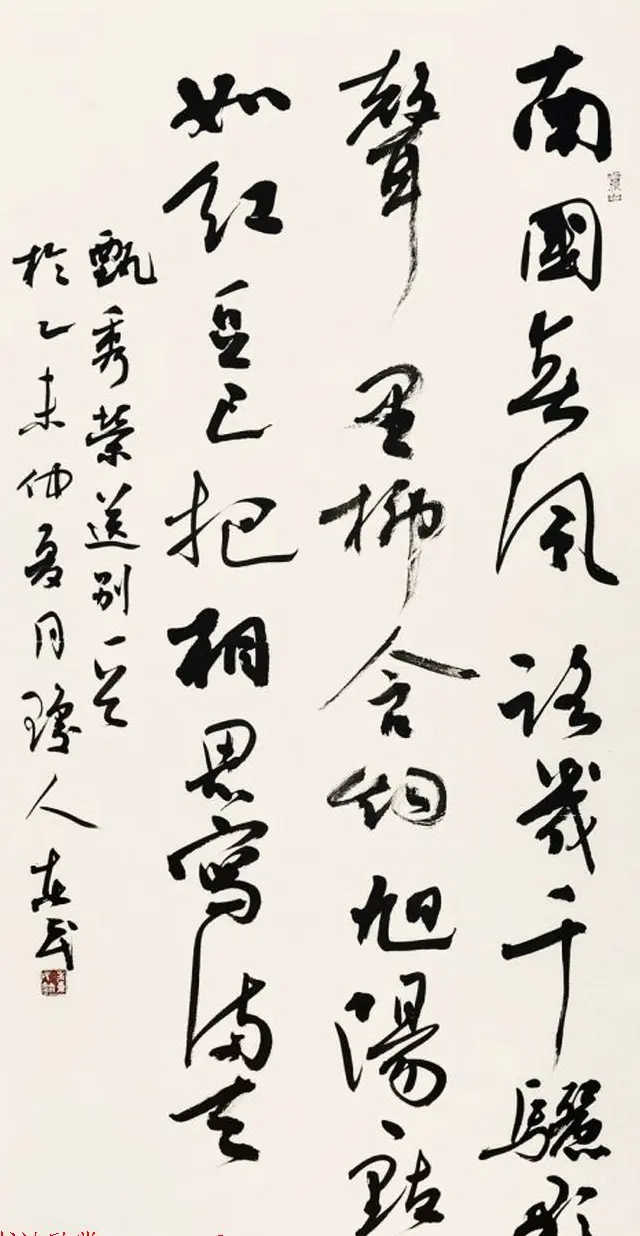 南國春風路幾千驪歌
聲里柳含烟旭陽一點
如紅豆已把相思寫滿天
甄秀榮送別一首
於乙未仲夏月人